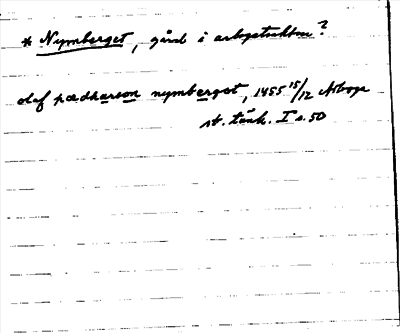 * Nymberget, gård i arbogatrakten?
olaf pædharson nymberget, 1455 15/12 Arboga
st. tänk. I s. 50